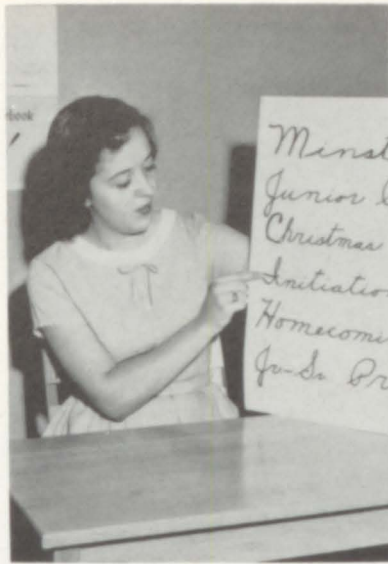 look
Minst
Junior
Christmas
Initiation
Homecomi
Jr-Sr Pr